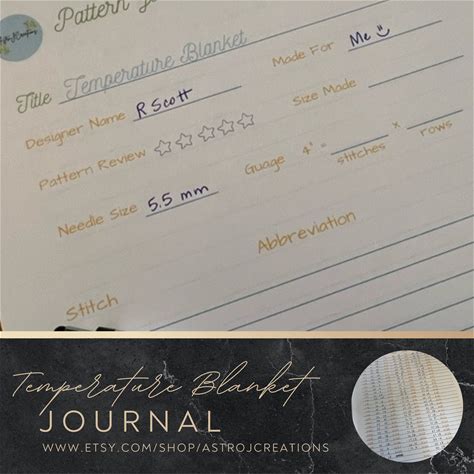 Pattern
Title Temperature Blanket
Designer Name R Scott
Made For Me
Pattern Review
Size Made
Needle Size 5.5 mm
Guage 4" = x
stitches rows
Abbreviation
Stitch
Temperature Blanket
JOURNAL
WWW.ETSY.COM/SHOP/ASTROJCREATIONS